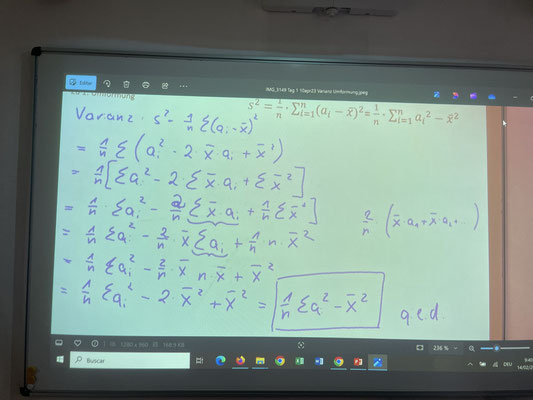 Editar
IMG_3149 Tag 1 10apr23 Varianz Umformung.jpeg
s² = 1/n · Σⁿᵢ₌₁(aᵢ − x̄)² = 1/n · Σⁿᵢ₌₁ aᵢ² − x̄²
Umformung
Varianz: s² = 1/n Σ(aᵢ − x̄)²
= 1/n Σ (aᵢ² − 2 · x̄ · aᵢ + x̄²)
= 1/n [Σaᵢ² − 2 · Σ x̄ · aᵢ + Σ x̄²]
= 1/n · Σaᵢ² − 2/n Σ x̄ · aᵢ + 1/n Σ x̄² ]
2/n · (x̄ · a₁ + x̄ · a₂ + ..)
= 1/n Σaᵢ² − 2/n · x̄ Σaᵢ + 1/n · n · x̄²
= 1/n Σaᵢ² − 2/n · x̄ · n · x̄ + x̄²
= 1/n Σaᵢ² − 2 · x̄² + x̄² = 1/n Σaᵢ² − x̄² q.e.d.
1280 x 960
168.9 KB
236 %
Buscar
DEU